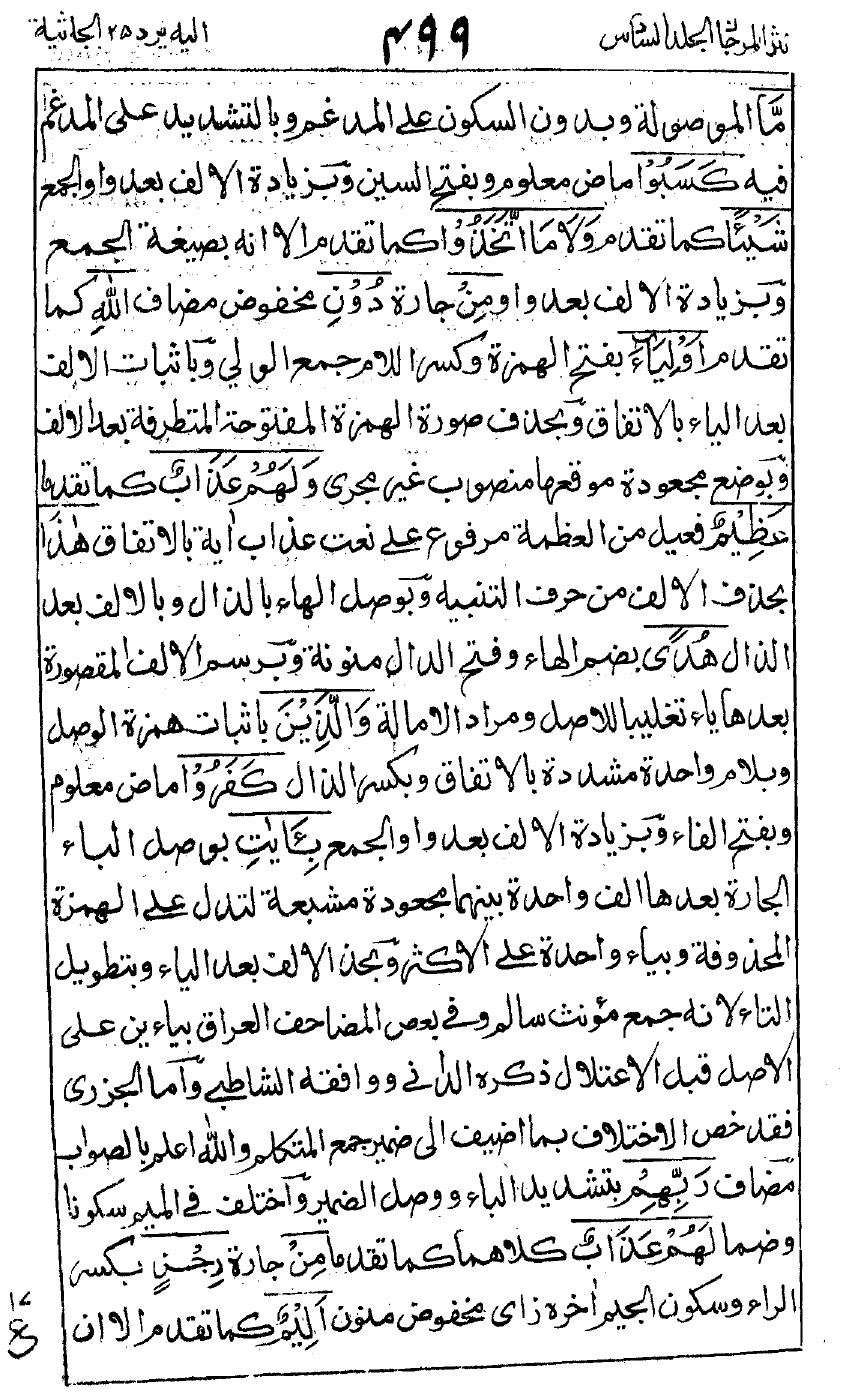 نثر المرجان المجلد السادس ٤٩٩ اليه يرد ٢٥ الجاثية
مَّا الموصولة وبدون السكون على المدغم وبالتشديد على المدغم
فيه كَسَبُوْا ماض معلوم وبفتح السين وَبزيادة الالف بعد واو الجمع
شَيْئًا كما تقدم وَلَا مَا اتَّخَذُوْا كما تقدم الا انه بصيغة الجمع
وَبزيادة الالف بعد واو مِنْ جارة دُوْنِ مخفوض مضاف اللهِ كما
تقدم اَوْلِيَاءَ بفتح الهمزة وكسر اللام جمع الولي وَباثبات الالف
بعد الياء بالاتفاق وَبحذف صورة الهمزة المفتوحة المتطرفة بعد الالف
وَبوضع مجعودة موقعها منصوب غير مجرى وَلَهُمْ عَذَابٌ كما تقدما
عَظِيْمٌ فعيل من العظمة مرفوع على نعت عذاب اٰية بالاتفاق هٰذَا
بحذف الالف من حرف التنبيه وَبوصل الهاء بالذال وبالالف بعد
الذال هُدًى بضم الهاء وفتح الدال منونة وَبرسم الالف المقصورة
بعدها ياء تغليبا للاصل ومراد الامالة وَالَّذِيْنَ باثبات همزة الوصل
وبلام واحدة مشددة بالاتفاق وبكسر الذال كَفَرُوْا ماض معلوم
وبفتح الفاء وَبزيادة الالف بعد واو الجمع بِـَٔايٰتِ بوصل الباء
الجارة بعدها الف واحدة بينهما مجعودة مشبعة لتدل على الهمزة
المحذوفة وبياء واحدة على الاكثر وَبحذ الالف بعد الياء وبتطويل
التاء لانه جمع مؤنث سالم وفي بعض المصاحف العراق بياءين على
الاصل قبل الاعتلال ذكره الداني ووافقه الشاطبي وَاما الجزرى
فقد خص الاختلاف بما اضيف الى ضمير جمع المتكلم والله اعلم بالصواب
مضاف رَبِّهِمْ بتشديد الباء ووصل الضمير وَاختلف في الميم سكونا
وضما لَهُمْ عَذَابٌ كلاهما كما تقدما مِنْ جارة رِجْزٍ بكسر
الراء وسكون الجيم اٰخره زاى مخفوض منون اَلِيْمٌ كما تقدم الا ان
١٧
ع